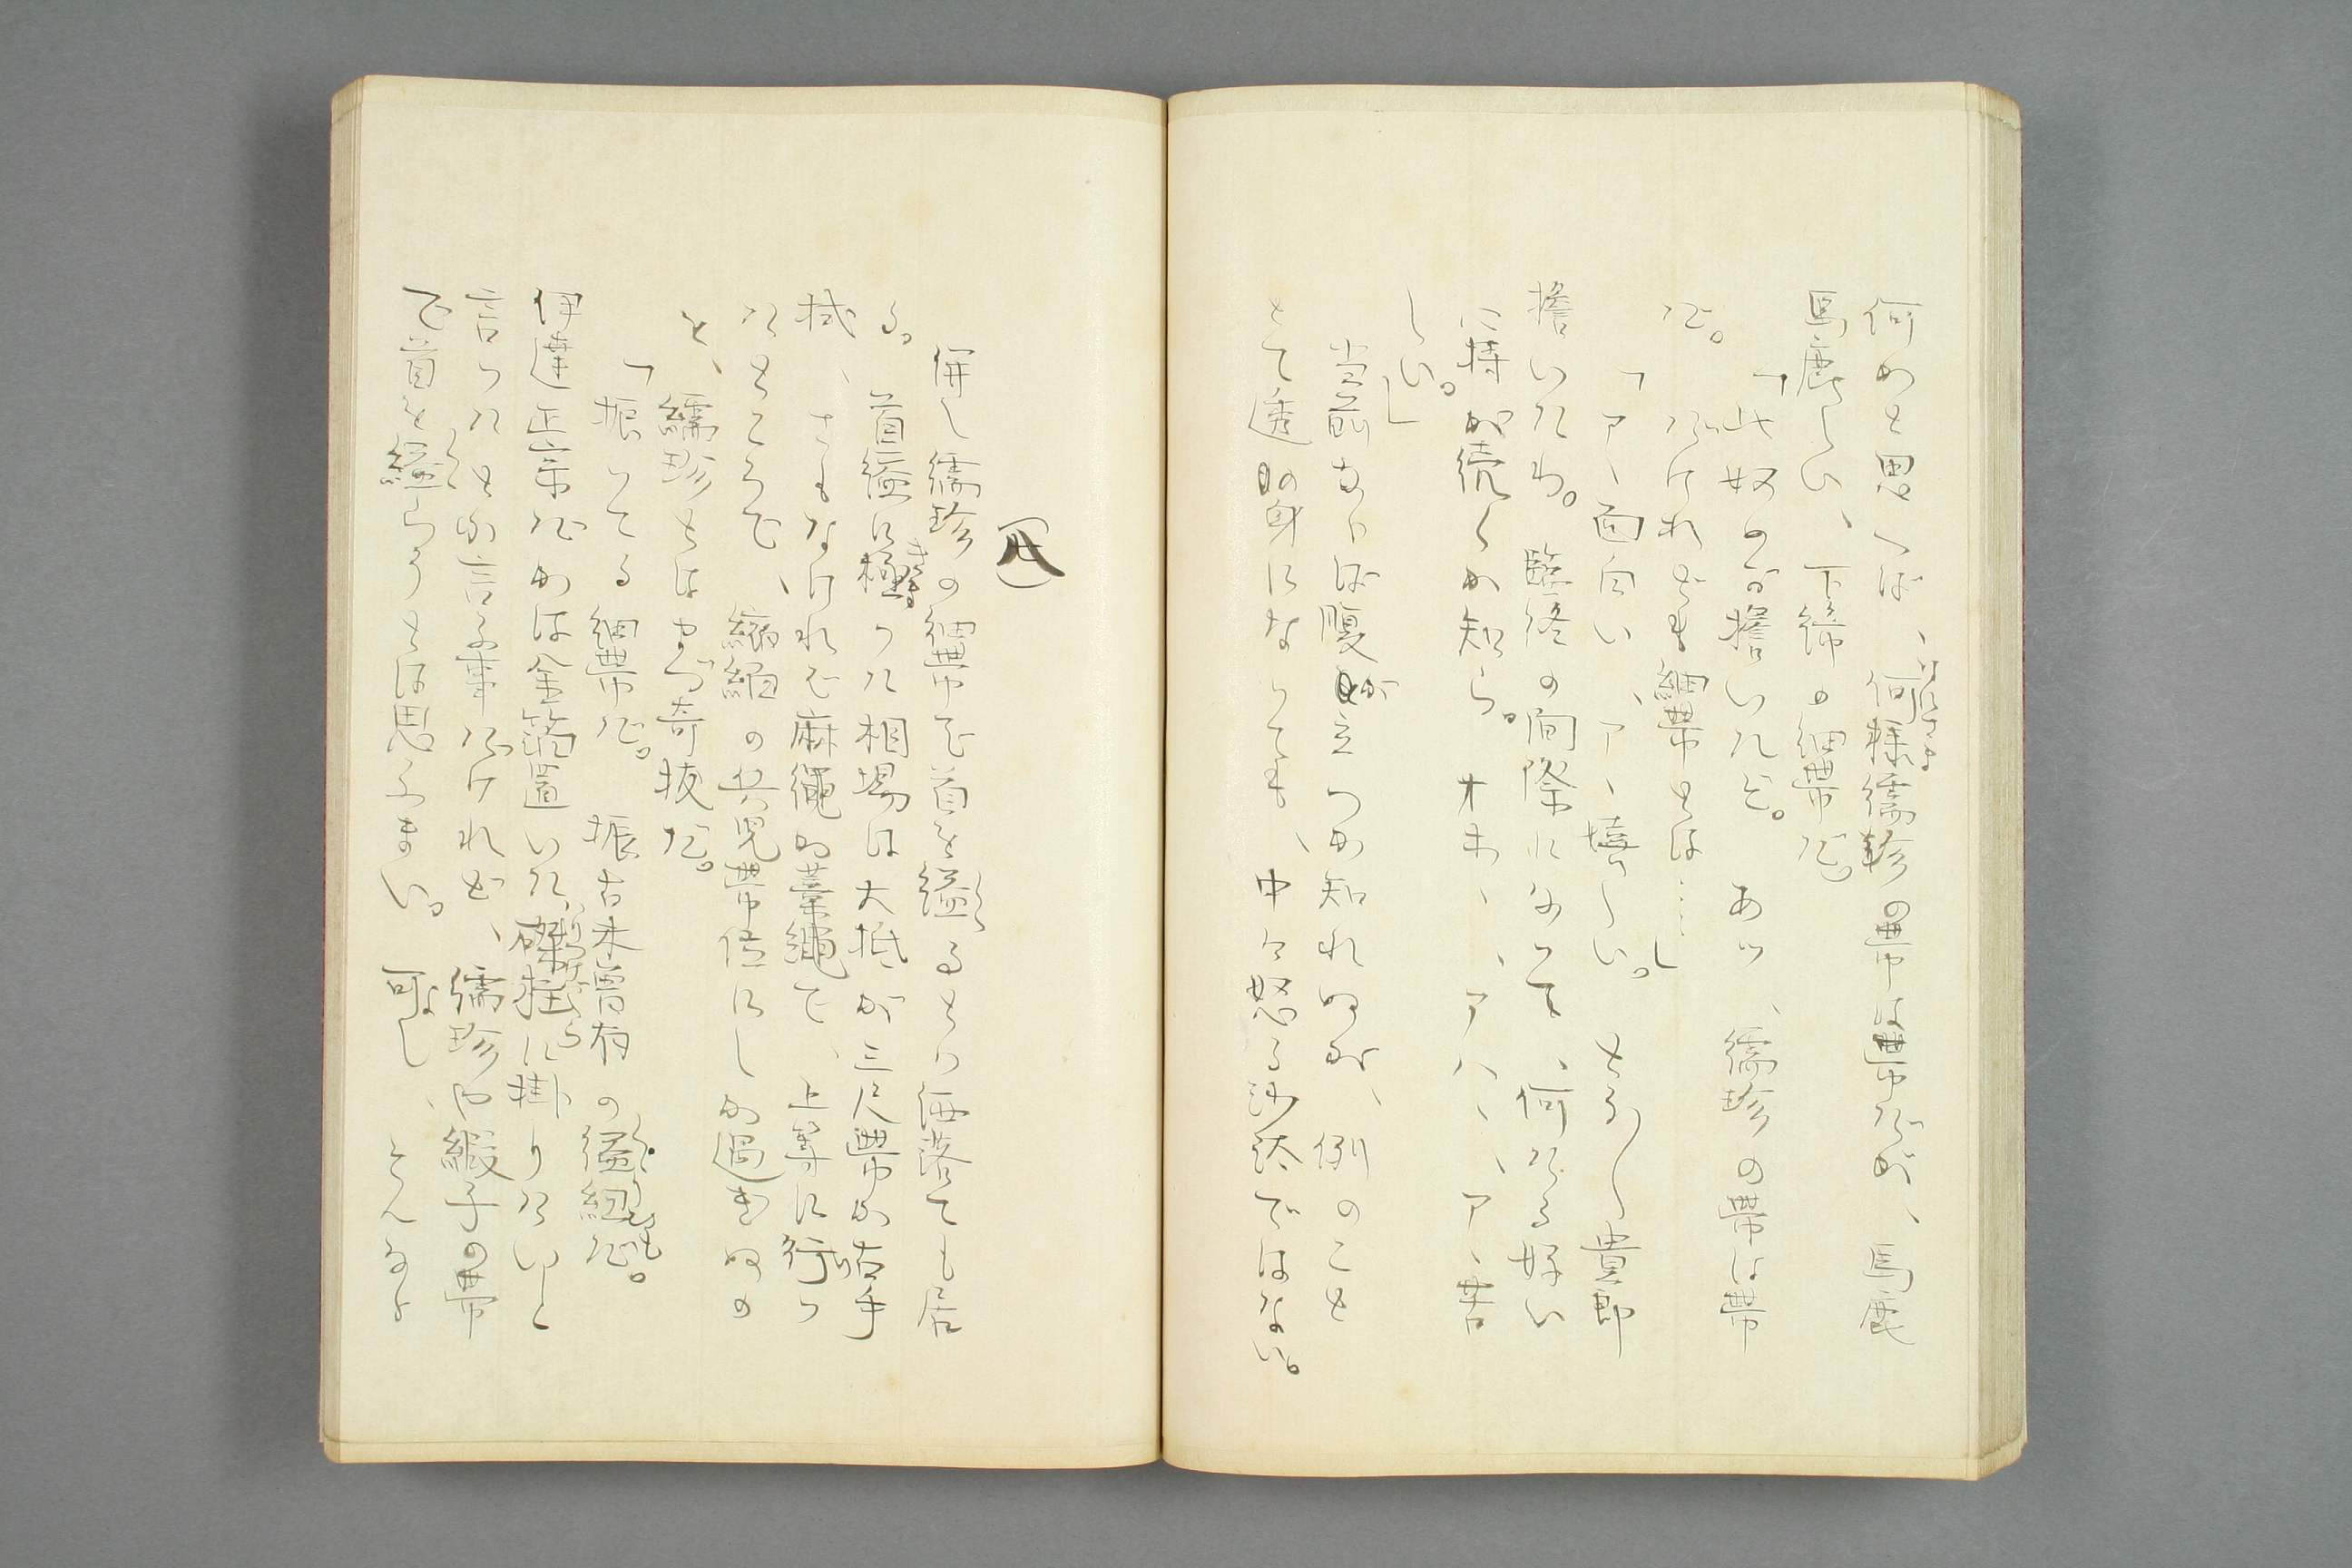 何かと思へば、何様繻珍の帯は帯だが、馬鹿
馬鹿しい、下締の細帯だ。
「此奴のが擔いだぞ。あッ、繻珍の帯は帯
だ。だけれども細帯とは……」
「アヽ面白い、アヽ嬉しい。とう〳〵貴郎
擔いだわ。臨終の間際になつて、何だる好い
に持が続くか知ら。オホヽヽ、アハヽヽ、アヽ苦
しい。」
当前ならば腹が立つかも知れぬが、例のこと
とて透の身になつても、中々怒る沙汰ではない。
(八)
併し繻珍の細帯で首を縊るとは洒落ても居
る。首縊に極つた相場は大抵が三尺帯か古手
拭、さもなければ麻縄か藁縄で、上等に行つ
たところで、縮緬の兵児帯位にしか過ぎぬの
を、繻珍とは中々奇抜だ。
「振つてる細帯だ。振古未曾有の縊紐だ。
伊達正宗だかは金箔置いた磔柱に掛りたいと
言つたとか言ふ事だけれど、繻珍や緞子の帯
で首を縊らうとは思ふまい。可し、そんなら